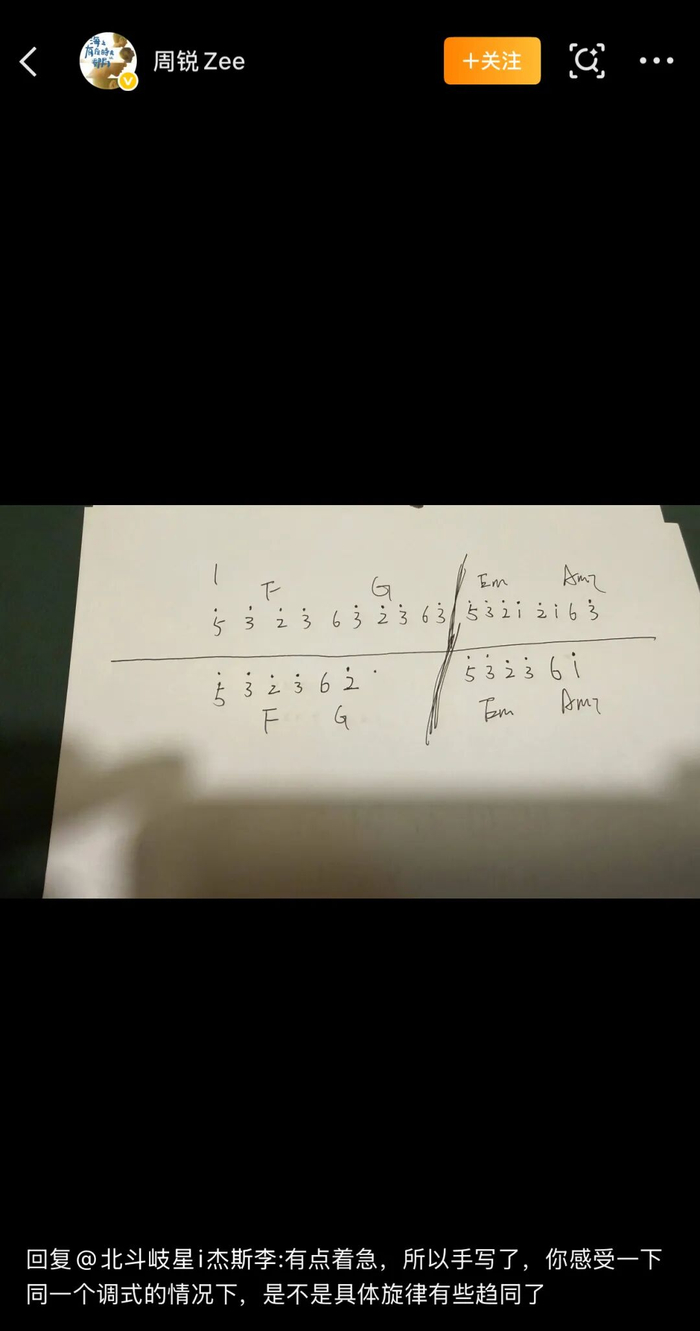 周锐Zee
+关注
1
F G Em Am7
5̇ 3̇ 2̇ 3̇ 6 3̇ 2̇ 3̇ 6 3̇ 5̇ 3̇ 2̇ 1̇ 2̇ 1̇ 6 3̇
5̇ 3̇ 2̇ 3̇ 6 2̇ 5̇ 3̇ 2̇ 3̇ 6 1̇
F G Em Am7
回复@北斗岐星i杰斯李:有点着急，所以手写了，你感受一下
同一个调式的情况下，是不是具体旋律有些趋同了